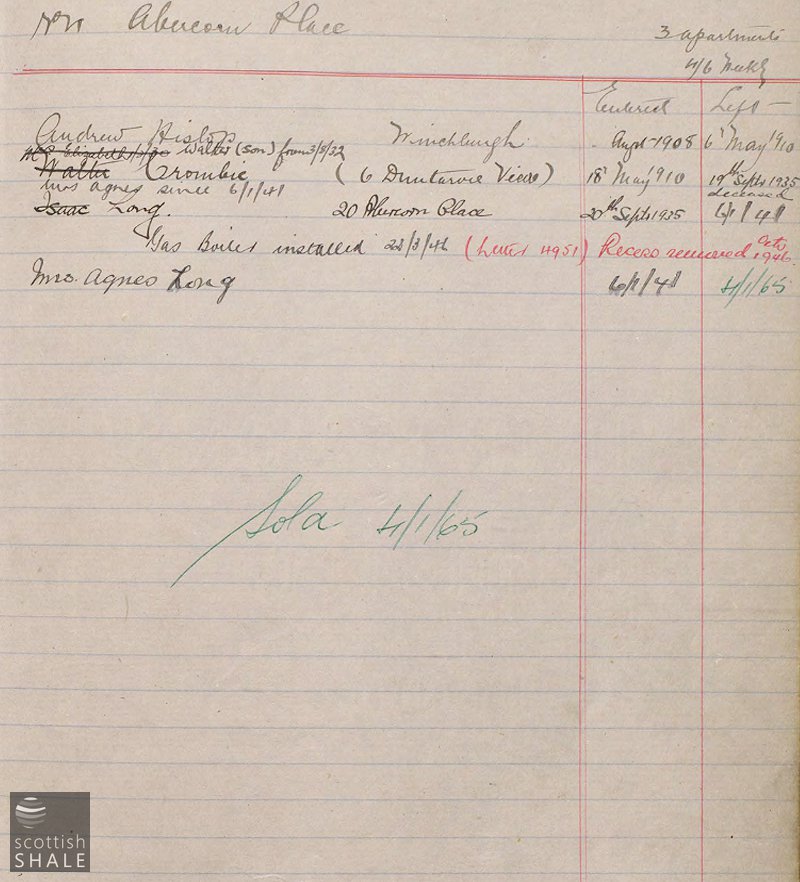 No 11 Abercorn Place
3 apartments
4/6 Weekly
Entered Left —
Andrew Hislop Winchburgh Augt 1908 6th May 1910
Mrs Elizabeth Walter (son) from 3/8/32
Walter Crombie (6 Duntarvie View) 18th May 1910 19th Septr 1935 deceased
Mrs Agnes since 6/1/41
Isaac Long. 20 Abercorn Place 20th Septr 1935 6/1/41
Gas Boiler installed 22/3/46 (Letter 4951) Recess removed Octr 1946.
Mrs. Agnes Long 6/1/41 4/1/65
Sold 4/1/65
scottish
SHALE